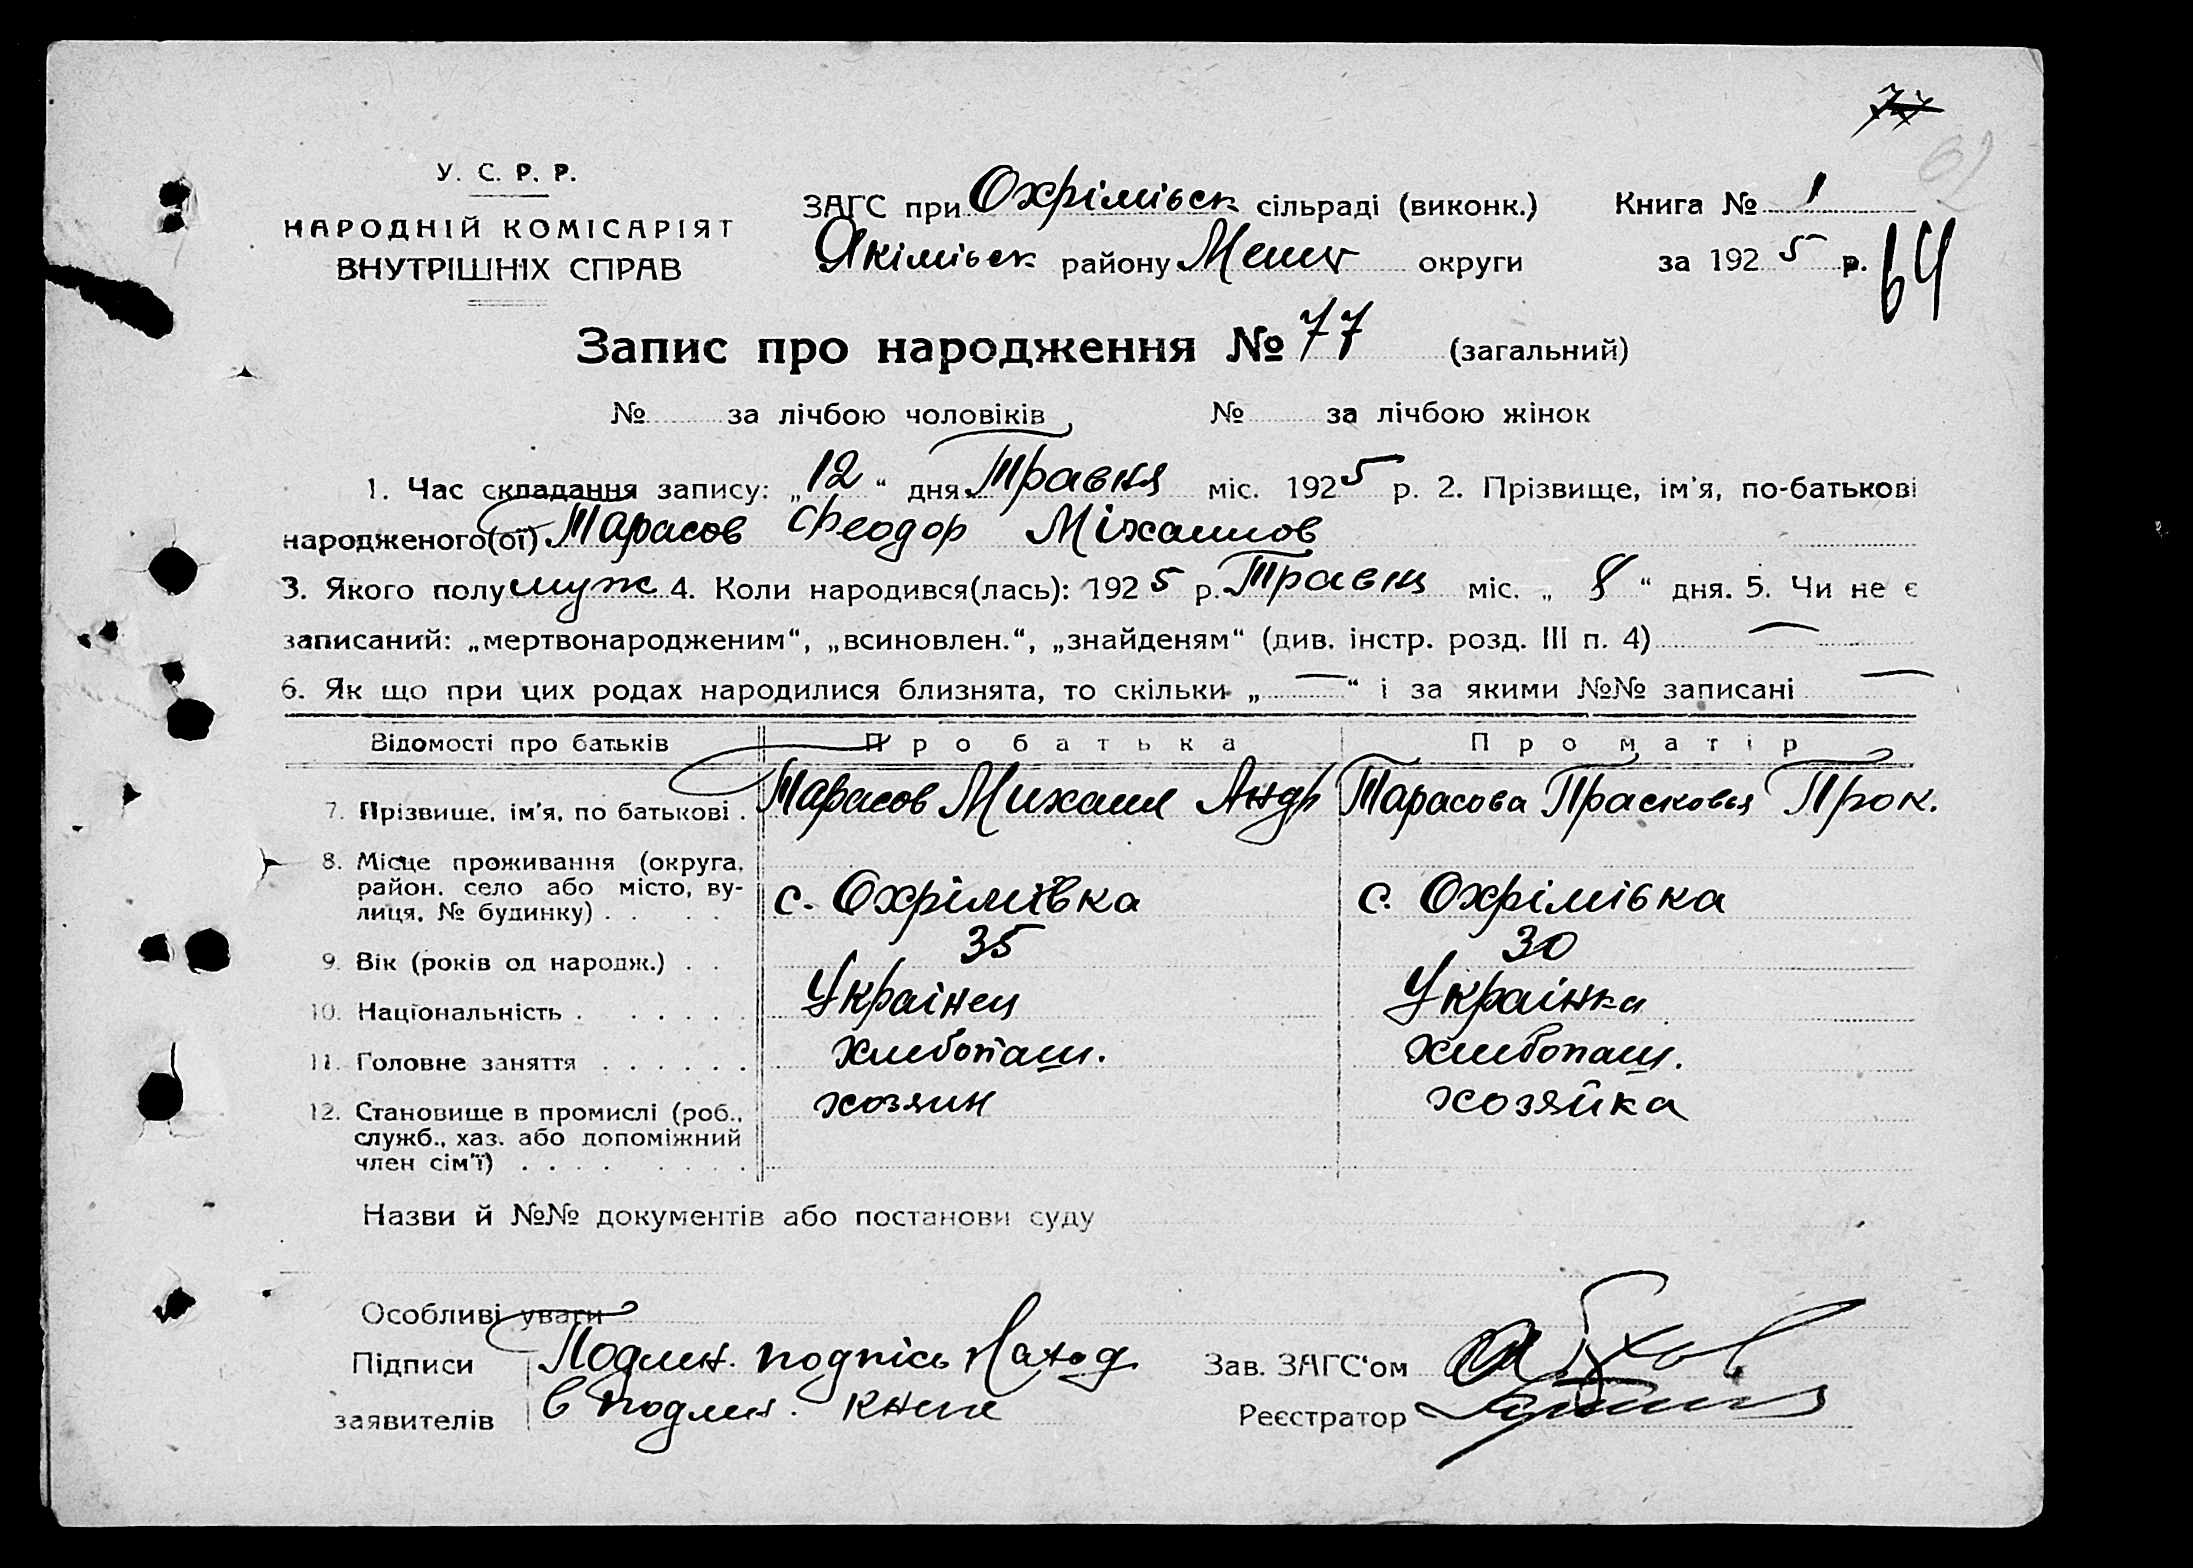 77
У. С. Р. Р.
НАРОДНІЙ КОМІСАРІЯТ
ВНУТРІШНІХ СПРАВ
ЗАГС при Охріміївск сільраді (виконк.) Книга № 1
Якімівск району Меліт округи за 1925 р.
64
Запис про народження № 77 (загальний)
№ за лічбою чоловіків № за лічбою жінок
1. Час складання запису: „12“ дня Травня міс. 1925 р. 2. Прізвище, ім'я, по-батькові
народженого(ої) Тарасов Феодор Міхаилов
3. Якого полу муж 4. Коли народився(лась): 1925 р. Травня міс. „8“ дня. 5. Чи не є
записаний: „мертвонародженим“, „всиновлен.“, „знайденям“ (див. інстр. розд. III п. 4) —
6. Як що при цих родах народилися близнята, то скільки „—“ і за якими №№ записані —
Відомості про батьків Про батька Про матір
7. Прізвище, ім'я, по батькові . Тарасов Михаил Андр Тарасова Прасковья Прок.
8. Місце проживання (округа,
район, село або місто, ву-
лиця, № будинку) . . . . с. Охрімівка с. Охрімівка
9. Вік (років од народж.) . . 35 30
10. Національність . . . . . . Украінец Украінка
11. Головне заняття . . . . . . хлибопаш. хлибопаш.
12. Становище в промислі (роб., хозяин хозяйка
служб., хаз. або допоміжний
член сім'ї) . . . . . . . .
Назви й №№ документів або постанови суду
Особливі уваги
Підписи Подлин. подпісь наход Зав. ЗАГС'ом
заявителів в подлин. книге Реєстратор